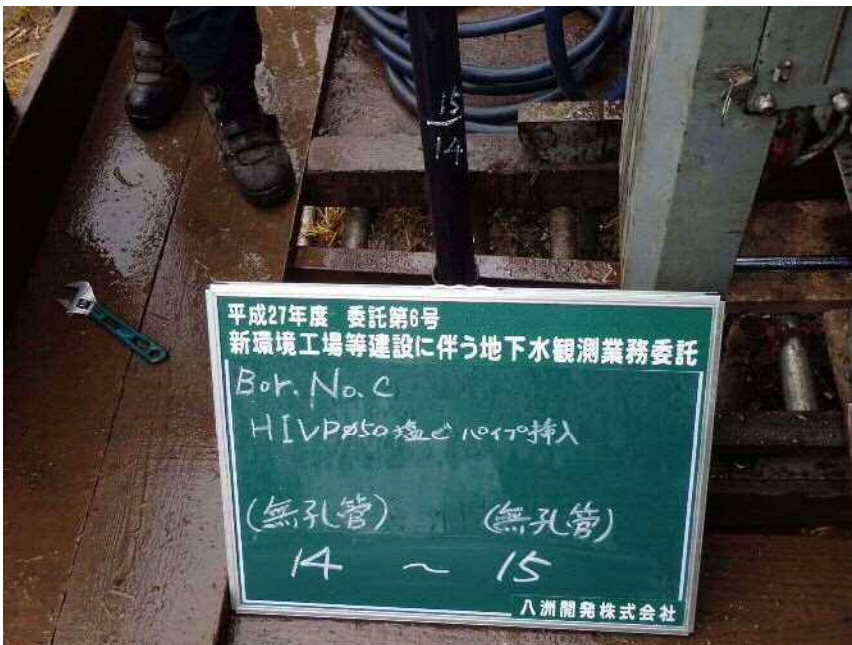 15
14
平成27年度 委託第6号
新環境工場等建設に伴う地下水観測業務委託
Bor. No. C
HIVPø50 塩ビ パイプ挿入
(無孔管) (無孔管)
14 ~ 15
八洲開発株式会社